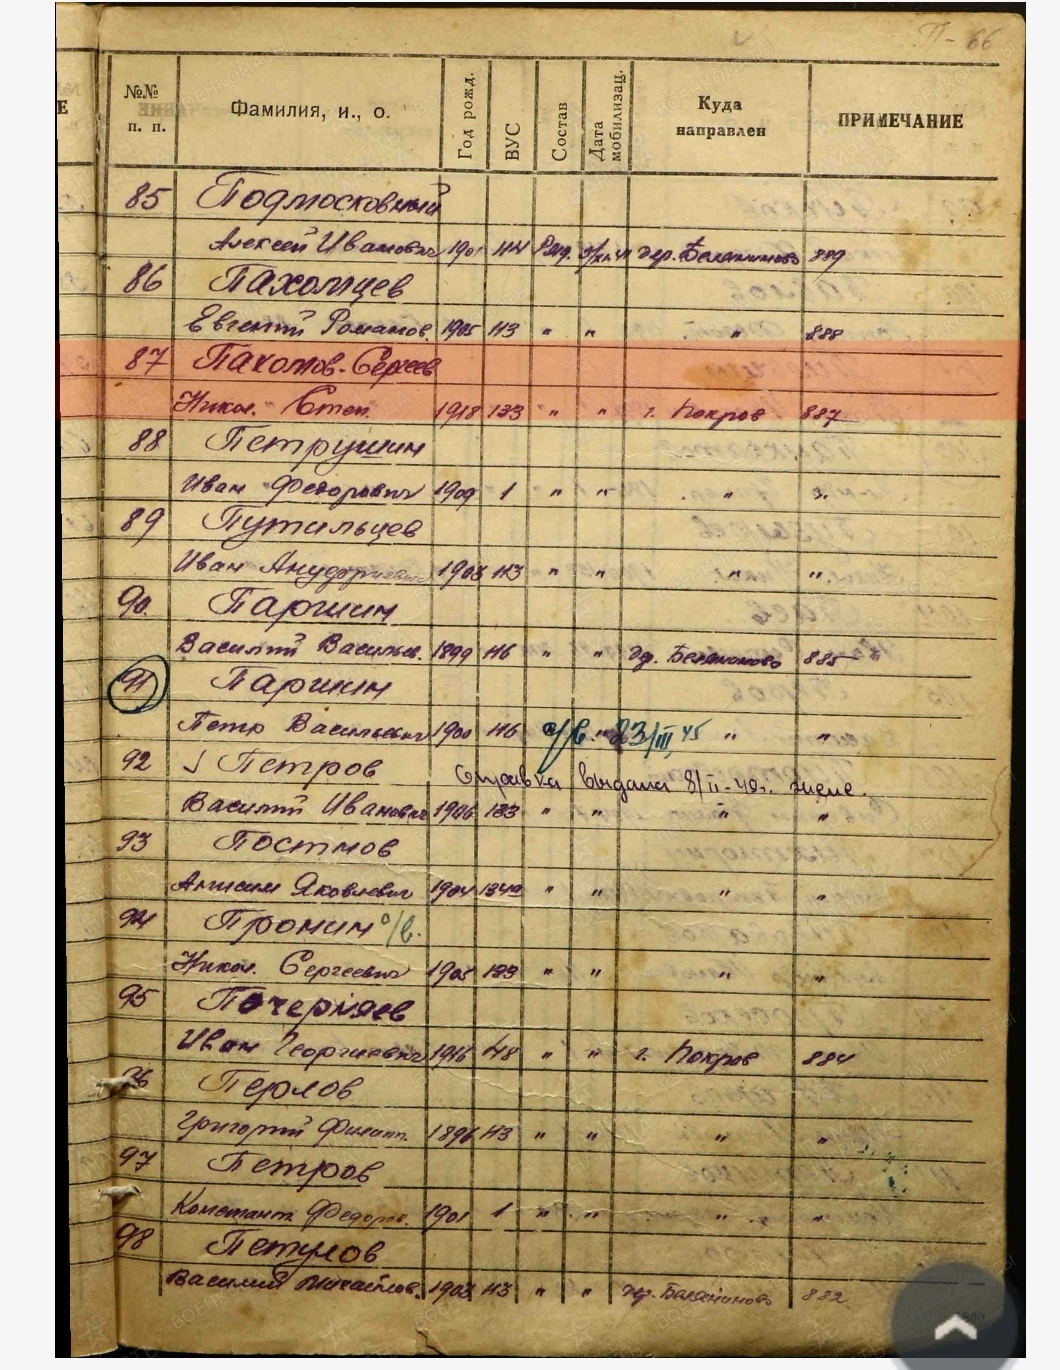 П-66
№№ п. п. Фамилия, и., о. Год рожд. ВУС Состав Дата мобилизац. Куда направлен ПРИМЕЧАНИЕ
85 Подмосковный
Алексей Иванович 1901 114 Ряд. гор. 889
86 Пахомцев
Евгений Романов. 1905 113 " " " 888
87 Пахомов-Сергеев
Никол. Степ. 1918 133 " " г. Покров 887
88 Петрушин
Иван Федорович 1909 1 " " " "
89 Путильцев
Иван 1903 113 " " " "
90. Паршин
Василий Васильев. 1899 116 " " 885
91 Паршин
Петр Васильевич 1900 116 о/в. " 23/III 45 " "
92 Петров Справка выдана 8/II-49г. жене.
Василий Иванович 1906 133 " " " "
93 Постнов
Анисим Яковлевич 1904 134а " " " "
94 Пронин о/в.
Никол. Сергеевич 1905 133 " " " "
95 Почерняев
Иван Георгиевич 1916 48 " " г. Покров 884
96 Перлов
Григорий Филипп. 1896 113 " " " "
97 Петров
Константин Федоров. 1901 1 " " " "
98 Петулов
Василий Михайлов. 1903 113 " " 882